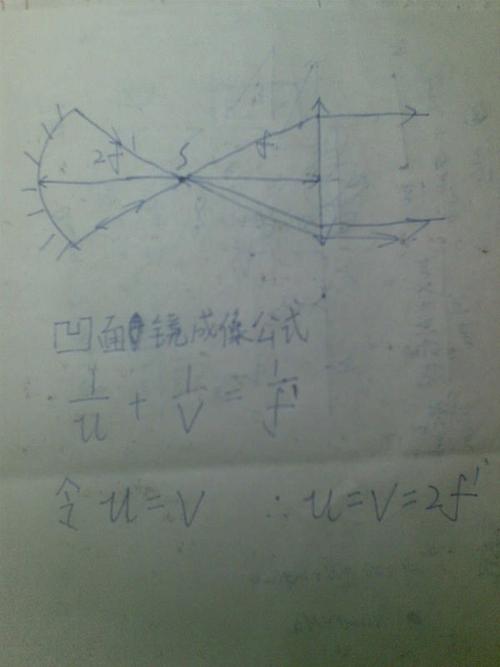 2f' S f
凹面镜成像公式
1/u + 1/v = 1/f'
令 u=v ∴ u=v=2f'